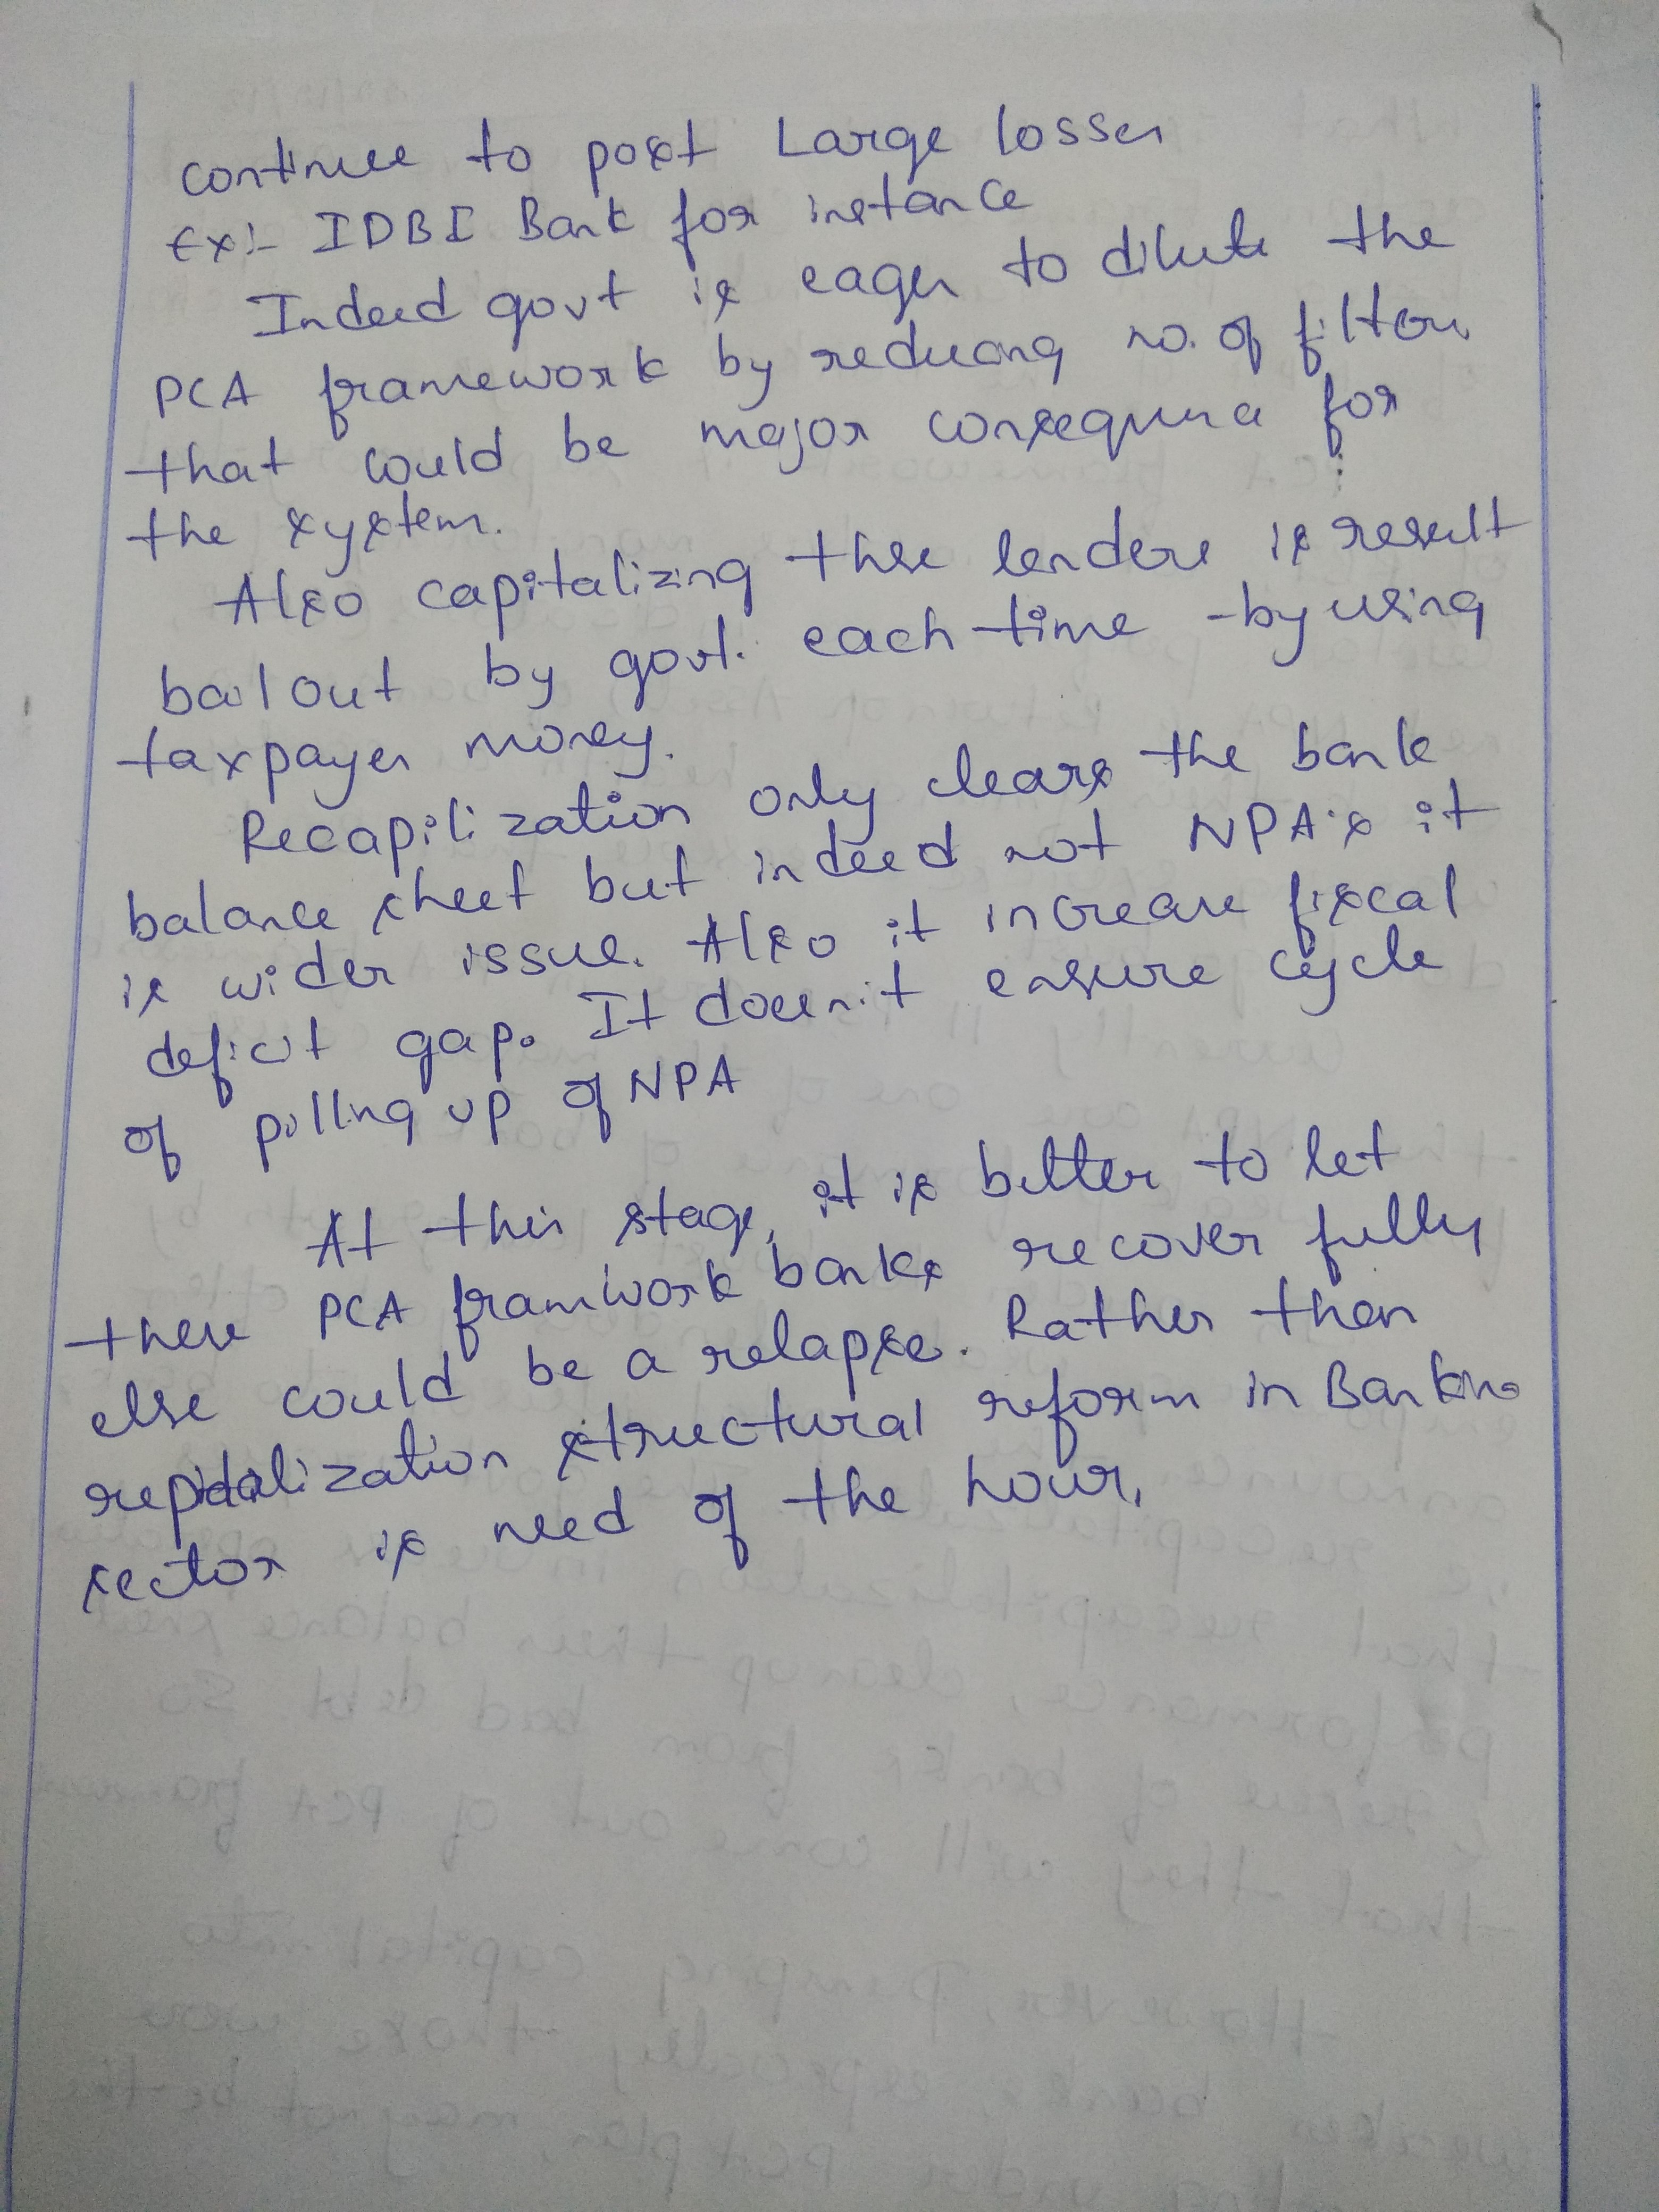 continue to post Large losses
Ex:- IDBI Bank for instance
Indeed govt is eager to dilute the
PCA framework by reducing no. of filters
that could be major consequence for
the system.
Also capitalizing these lenders is result
bailout by govt. each time - by using
taxpayer money.
Recapilization only clears the bank
balance sheet but indeed not NPA's it
is wider issue. Also it increase fiscal
deficit gap. It doesn't ensure cycle
of pilling up of NPA
At this stage, it is better to let
these PCA framwork banks recover fully
else could be a relapse. Rather than
structural reform in Banking
sector is need of the hour.